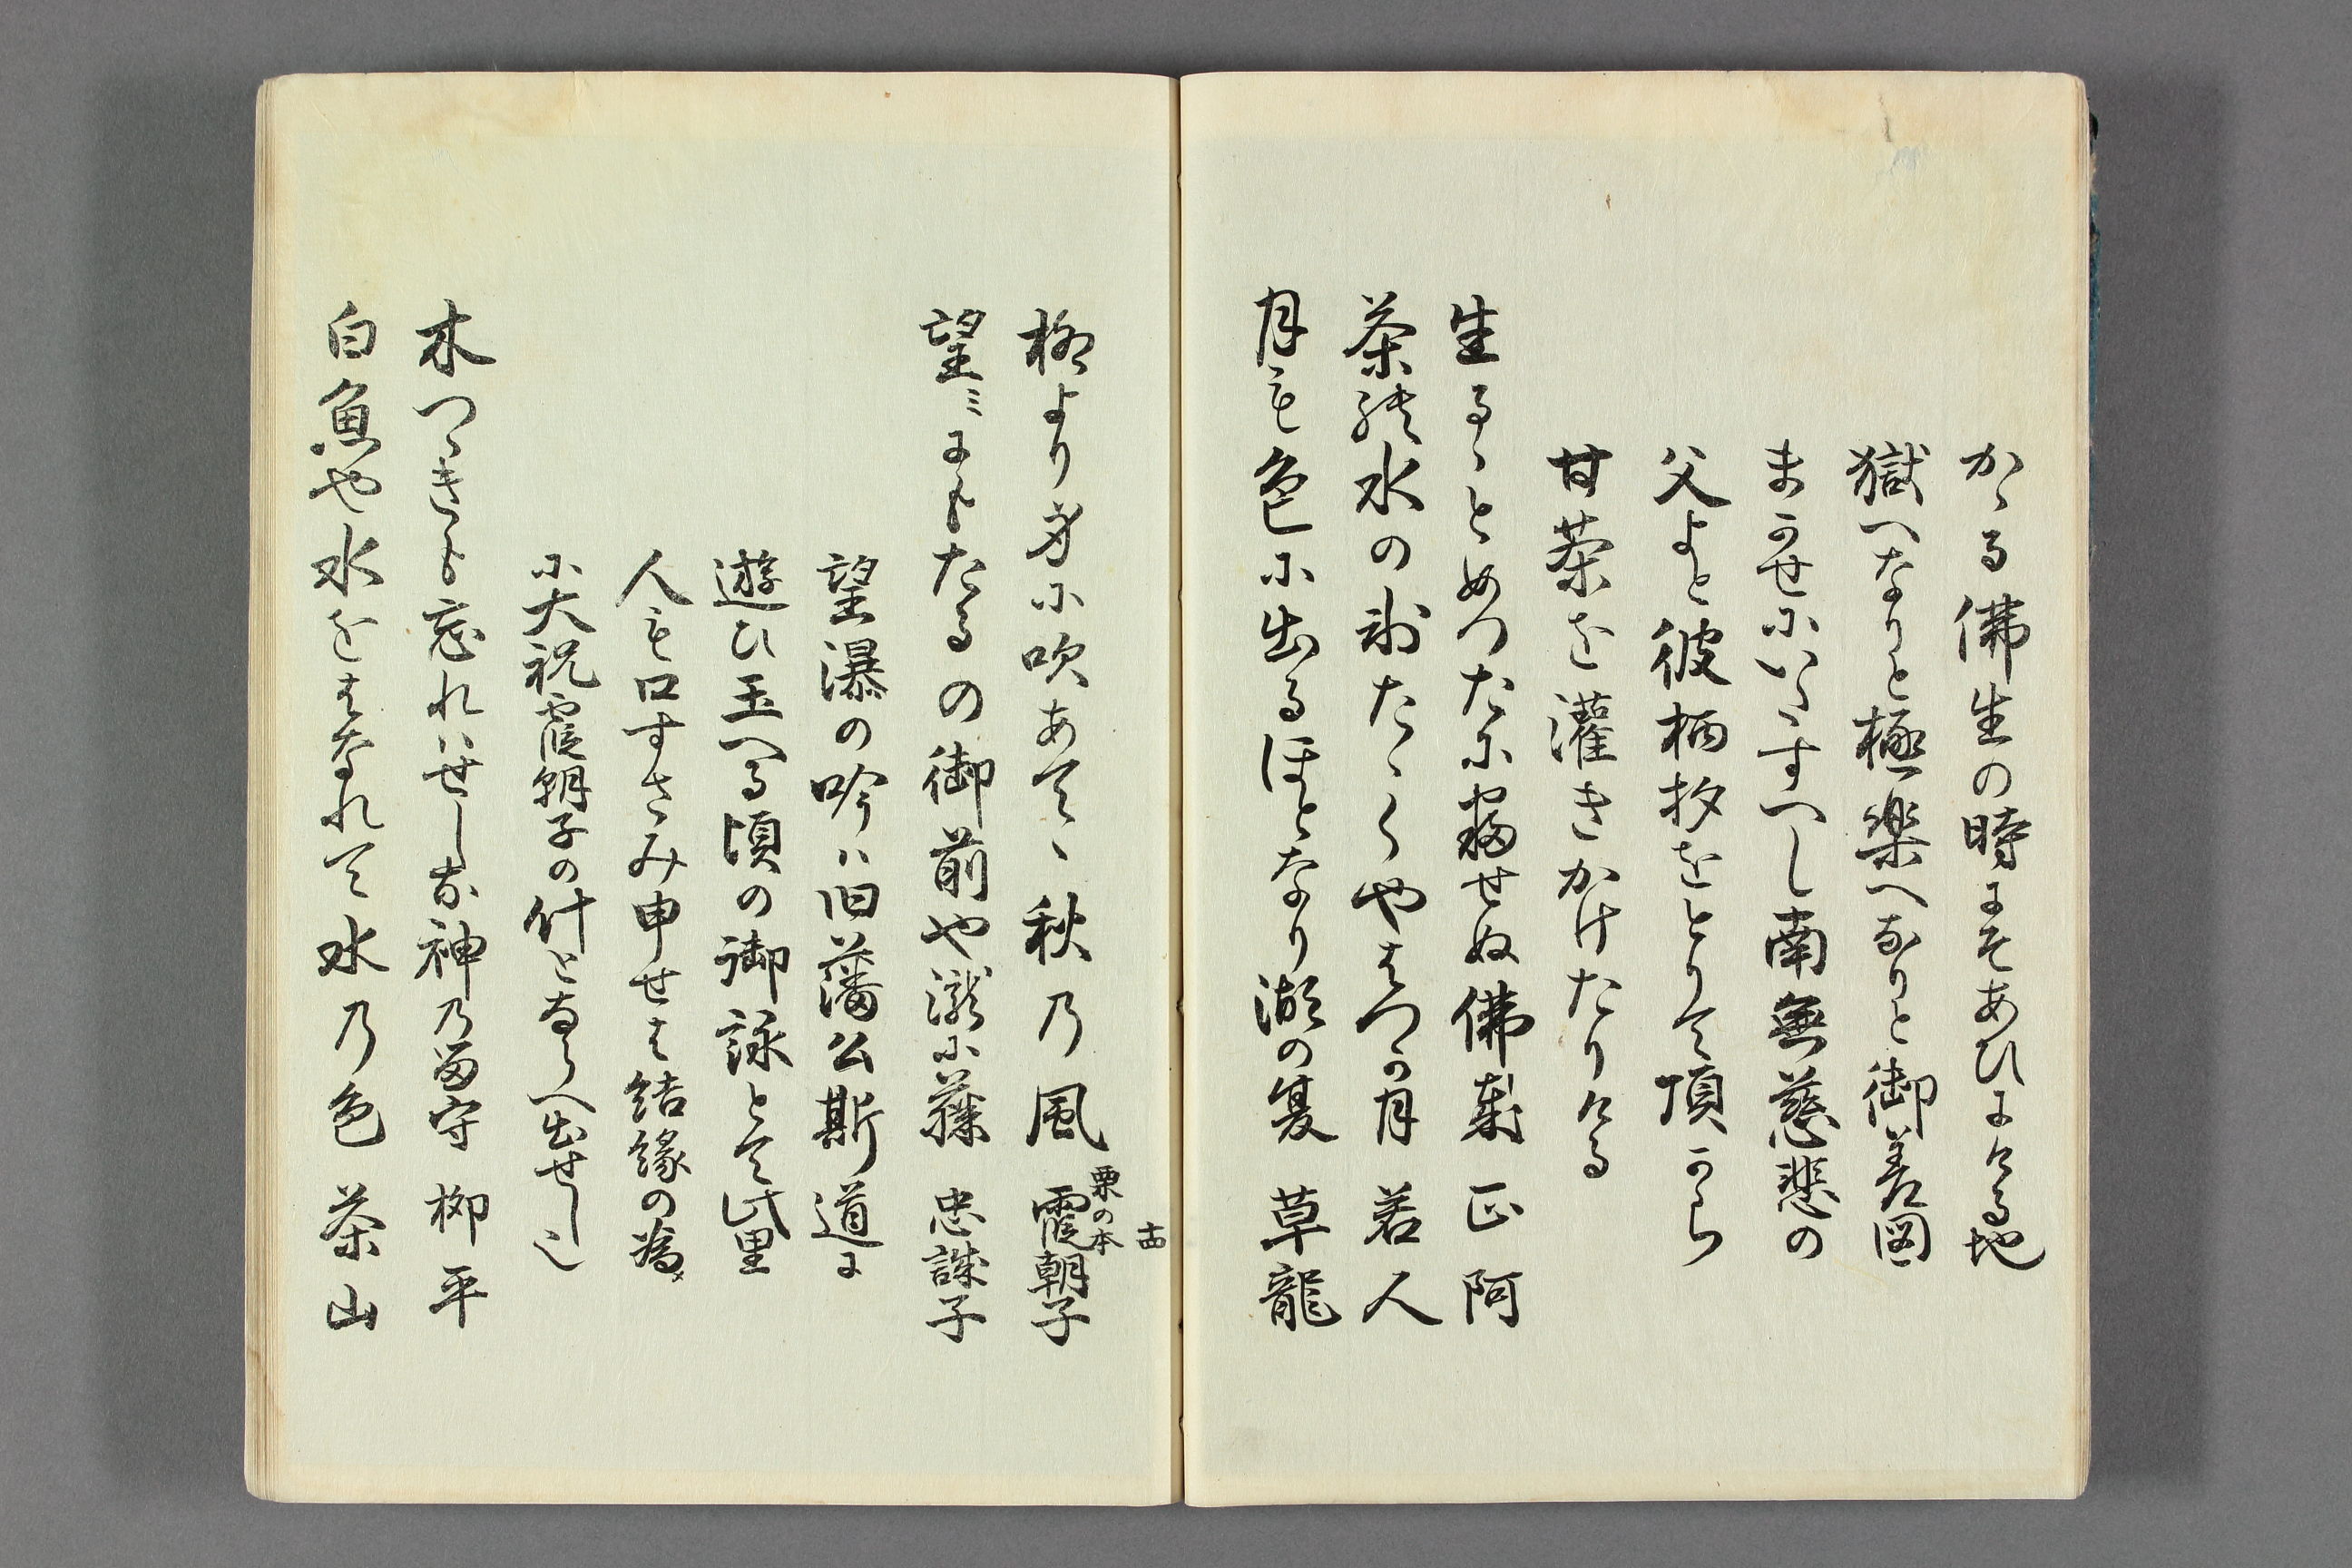 かゝる佛生の時にそあひにける地
獄へなりと極楽へなりと御差図
まかせにいたすへし南無慈悲の
父よと彼柄杓をとりて頂から
甘茶を灌きかけたりける
生るゝとめつたに寐せぬ佛哉 正阿
茶の水の私たゝくやはつか月 若人
月も色に出るほとなり湖の夏 草龍
古
栗の本
柳より身に吹あてゝ秋乃風 霞朝子
望ミにもたるの御前や瀧に藤 忠誨子
望瀑の吟ハ旧藩公斯道に
遊ひ玉へる頃の御詠とて此里
人も口すさみ申せは結縁の為メ
に大祝霞朝子の什とならへ出せし也
木つゝきも忘れハせしな神乃留守 柳平
白魚や水をはなれて水乃色 茶山